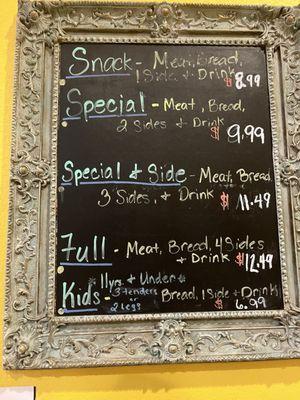 Snack - Meat, Bread,
1 Side + Drink
$8.99
Special - Meat, Bread,
2 Sides + Drink
$9.99
Special & Side - Meat, Bread
3 Sides, + Drink
$11.49
Full - Meat, Bread, 4 Sides
+ Drink $12.49
*11yrs. + Under*
Kids - 3 Tenders or 2 Legs Bread, 1 Side + Drink
$6.99